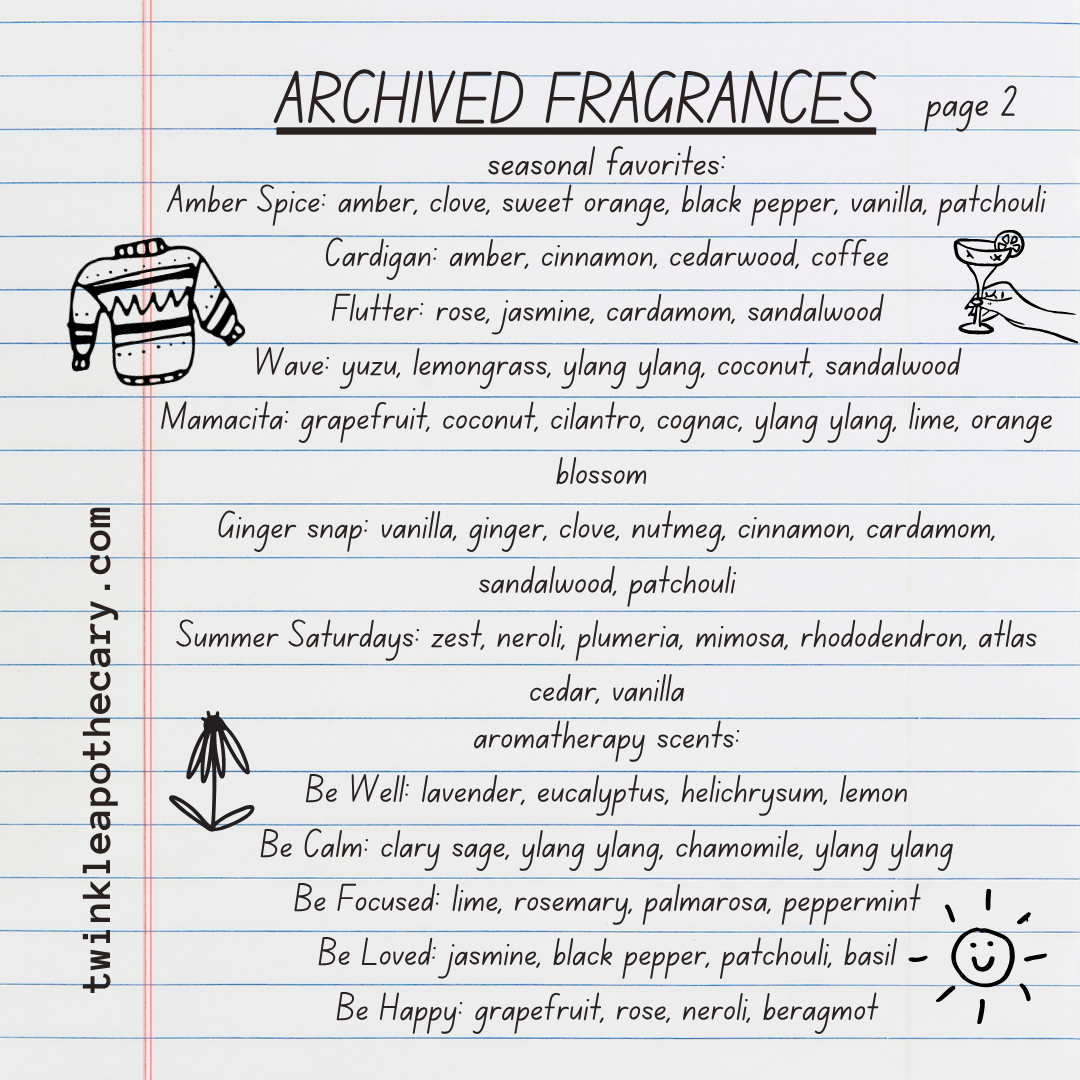 ARCHIVED FRAGRANCES
page 2
seasonal favorites:
Amber Spice: amber, clove, sweet orange, black pepper, vanilla, patchouli
Cardigan: amber, cinnamon, cedarwood, coffee
Flutter: rose, jasmine, cardamom, sandalwood
Wave: yuzu, lemongrass, ylang ylang, coconut, sandalwood
Mamacita: grapefruit, coconut, cilantro, cognac, ylang ylang, lime, orange
blossom
Ginger snap: vanilla, ginger, clove, nutmeg, cinnamon, cardamom,
sandalwood, patchouli
Summer Saturdays: zest, neroli, plumeria, mimosa, rhododendron, atlas
cedar, vanilla
aromatherapy scents:
Be Well: lavender, eucalyptus, helichrysum, lemon
Be Calm: clary sage, ylang ylang, chamomile, ylang ylang
Be Focused: lime, rosemary, palmarosa, peppermint
Be Loved: jasmine, black pepper, patchouli, basil
Be Happy: grapefruit, rose, neroli, beragmot
twinkleapothecary.com